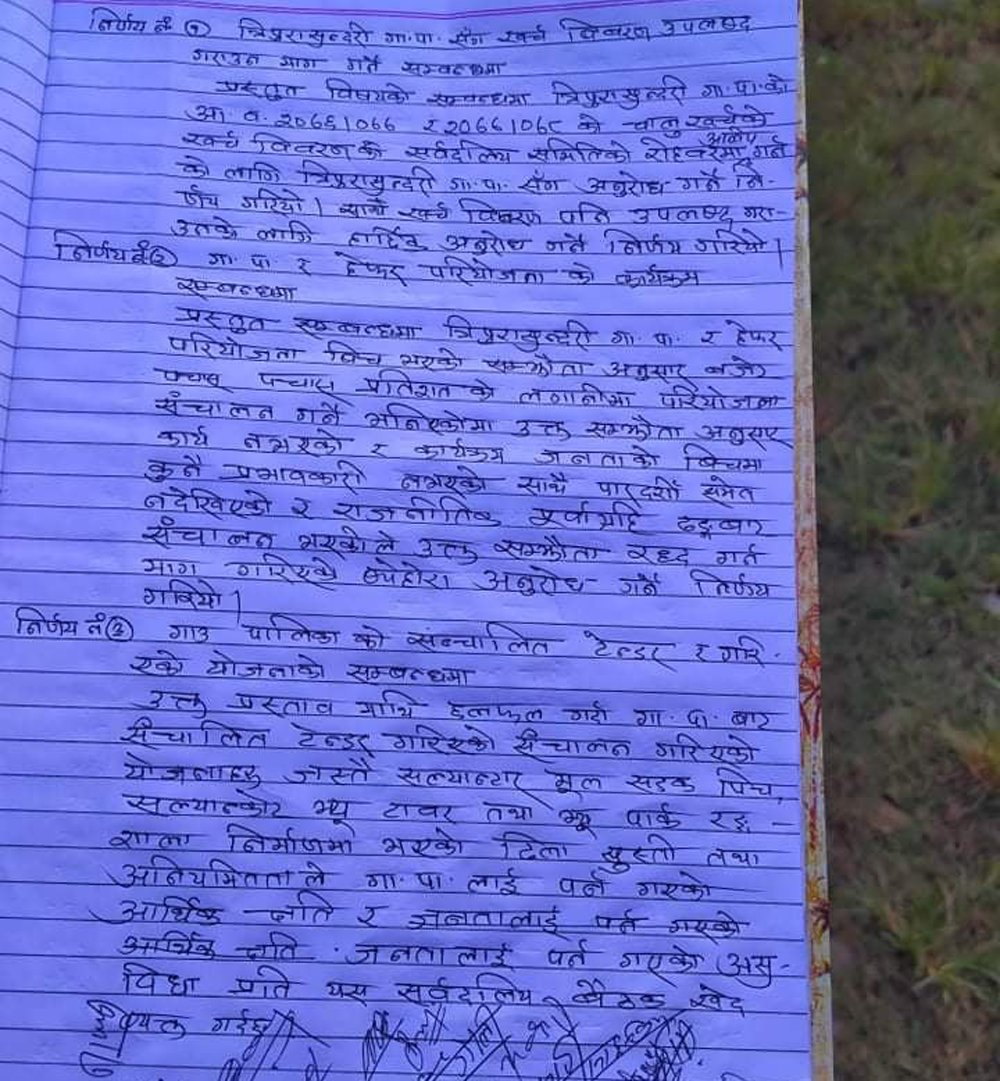 निर्णय नं १ त्रिपुरासुन्दरी गा.पा. सँग खर्च विवरण उपलब्द
गराउन माग गर्ने सम्बन्धमा
प्रस्तुत विषयको सम्बन्धमा त्रिपुरासुन्दरी गा.पा.को
आ.व. २०७६।०७७ र २०७७।०७८ को चालु खर्चको
खर्च विवरण की सर्वदलिय समितिको रोहवरमा गर्न
को लागि त्रिपुरासुन्दरी गा.पा. सँग अनुरोध गर्ने नि-
र्णय गरियो। साथै खर्च विवरण पनि उपलब्द गरा-
उनको लागि हार्दिक अनुरोध गर्ने निर्णय गरियो।
निर्णय नं २ गा. पा. र हेफर परियोजना को कार्यक्रम
सम्बन्धमा
प्रस्तुत सम्बन्धमा त्रिपुरासुन्दरी गा. पा. र हेफर
परियोजना विच भएको सम्झौता अनुसार बजेट
पचास पचास प्रतिशत को लगानीमा परियोजना
संचालन गर्ने भनिएकोमा उक्त सम्झौता अनुसार
कार्य नभएको र कार्यक्रम जनताको विचमा
कुनै प्रभावकारी नभएको साथै पारदर्शी समेत
नदेखिएको र राजनीतिक पूर्वाग्रहि ढङ्गबाट
संचालन भएकोले उक्त सम्झौता रद्द गर्न
माग गरिएको ब्येहोरा अनुरोध गर्ने निर्णय
गरियो।
निर्णय नं ३ गाउ पालिका को संन्चालित टेन्डर र गरि-
एको योजनाको सम्बन्धमा
उक्त प्रस्ताव माथि छलफल गरी गा. पा. बाट
संचालित टेन्डर गरिएको संचालन गरिएको
योजनाहरु जस्तै सल्यान्टार मूल सडक पिच,
सल्यानकोट भ्यू टावर तथा भ्यू पार्क रङ्ग-
शाला निर्माणमा भएको ढिला सुस्ती तथा
अनियमितता ले गा. पा. लाई पर्न गएको
आर्थिक क्षति र जनतालाई पर्न गएको
आर्थिक क्षति . जनतालाई पर्न गएको असु-
विधा प्रति यस सर्वदलिय बैठक खेद
व्यक्त गर्दछ